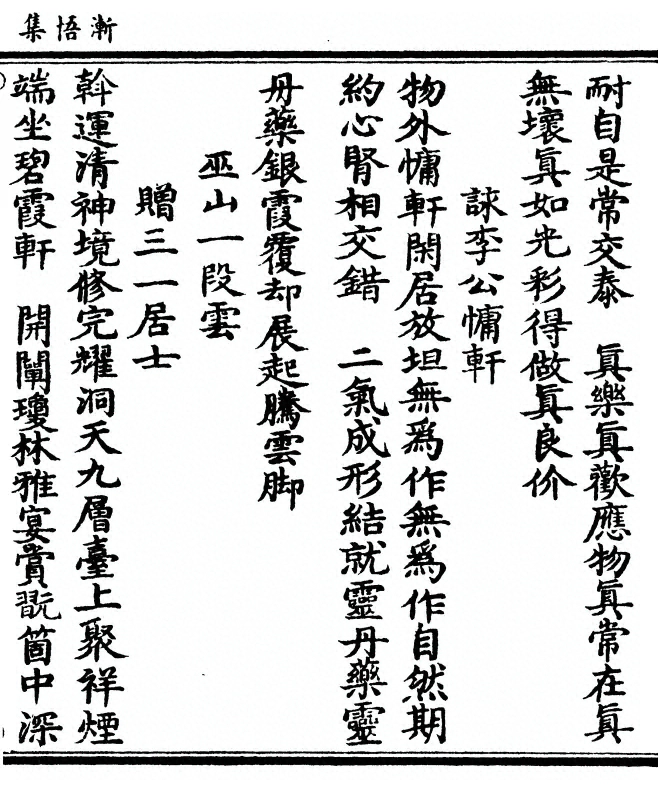 漸悟集
耐自是常交泰　眞樂眞歡應物眞常在眞
無壞眞如光彩得做眞良价
詠李公慵軒
物外慵軒閑居放坦無爲作無爲作自然期
約心腎相交錯　二氣成形結就靈丹藥靈
丹藥銀霞覆却展起騰雲脚
巫山一段雲
贈三一居士
斡運清神境修完耀洞天九層臺上聚祥煙
端坐碧霞軒　開闡瓊林雅宴賞翫箇中深